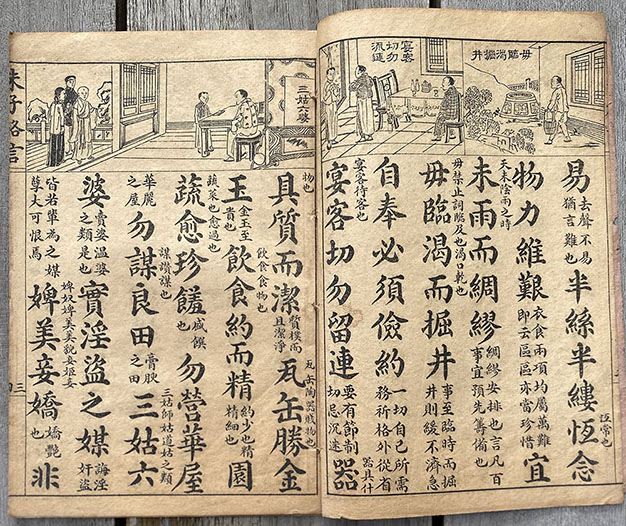 毋臨渴掘井
宴客
切勿
流連
易
去聲不易
猶言難也
半絲半縷恆念
恆常也
物力維艱
衣食兩項均屬萬難
即云區區亦當珍惜
宜
天未陰雨之時
未雨而綢繆
綢繆安排也言凡百
事宜預先籌備也
毋禁止詞臨及也渴口乾也
毋臨渴而掘井
事至臨時而掘
井則緩不濟急
自奉必須儉約
一切自己所需
務所格外從省
宴客待客也
宴客切勿留連
要有節制
切忌沉迷
器
器具什
三姑六婆
物也
具質而潔
質樸而
且潔淨
瓦缶勝金
瓦缶陶器賤物也
玉
金玉至
貴也
飲食食物也
飲食約而精
約少也精
精細也
園
蔬菜也愈過也
蔬愈珍饈
盛饌
也
勿營華屋
華麗
之屋
勿謀良田
膏腴
之田
三姑六
三姑師姑道姑之類
婆
賣婆溫婆
之類是也
實淫盜之媒
誨淫
奸盜
皆若輩為之媒
尊大可恨焉
婢奴婢美美貌妾姬妾
婢美妾嬌
嬌艷
也
非
朱子格言
三